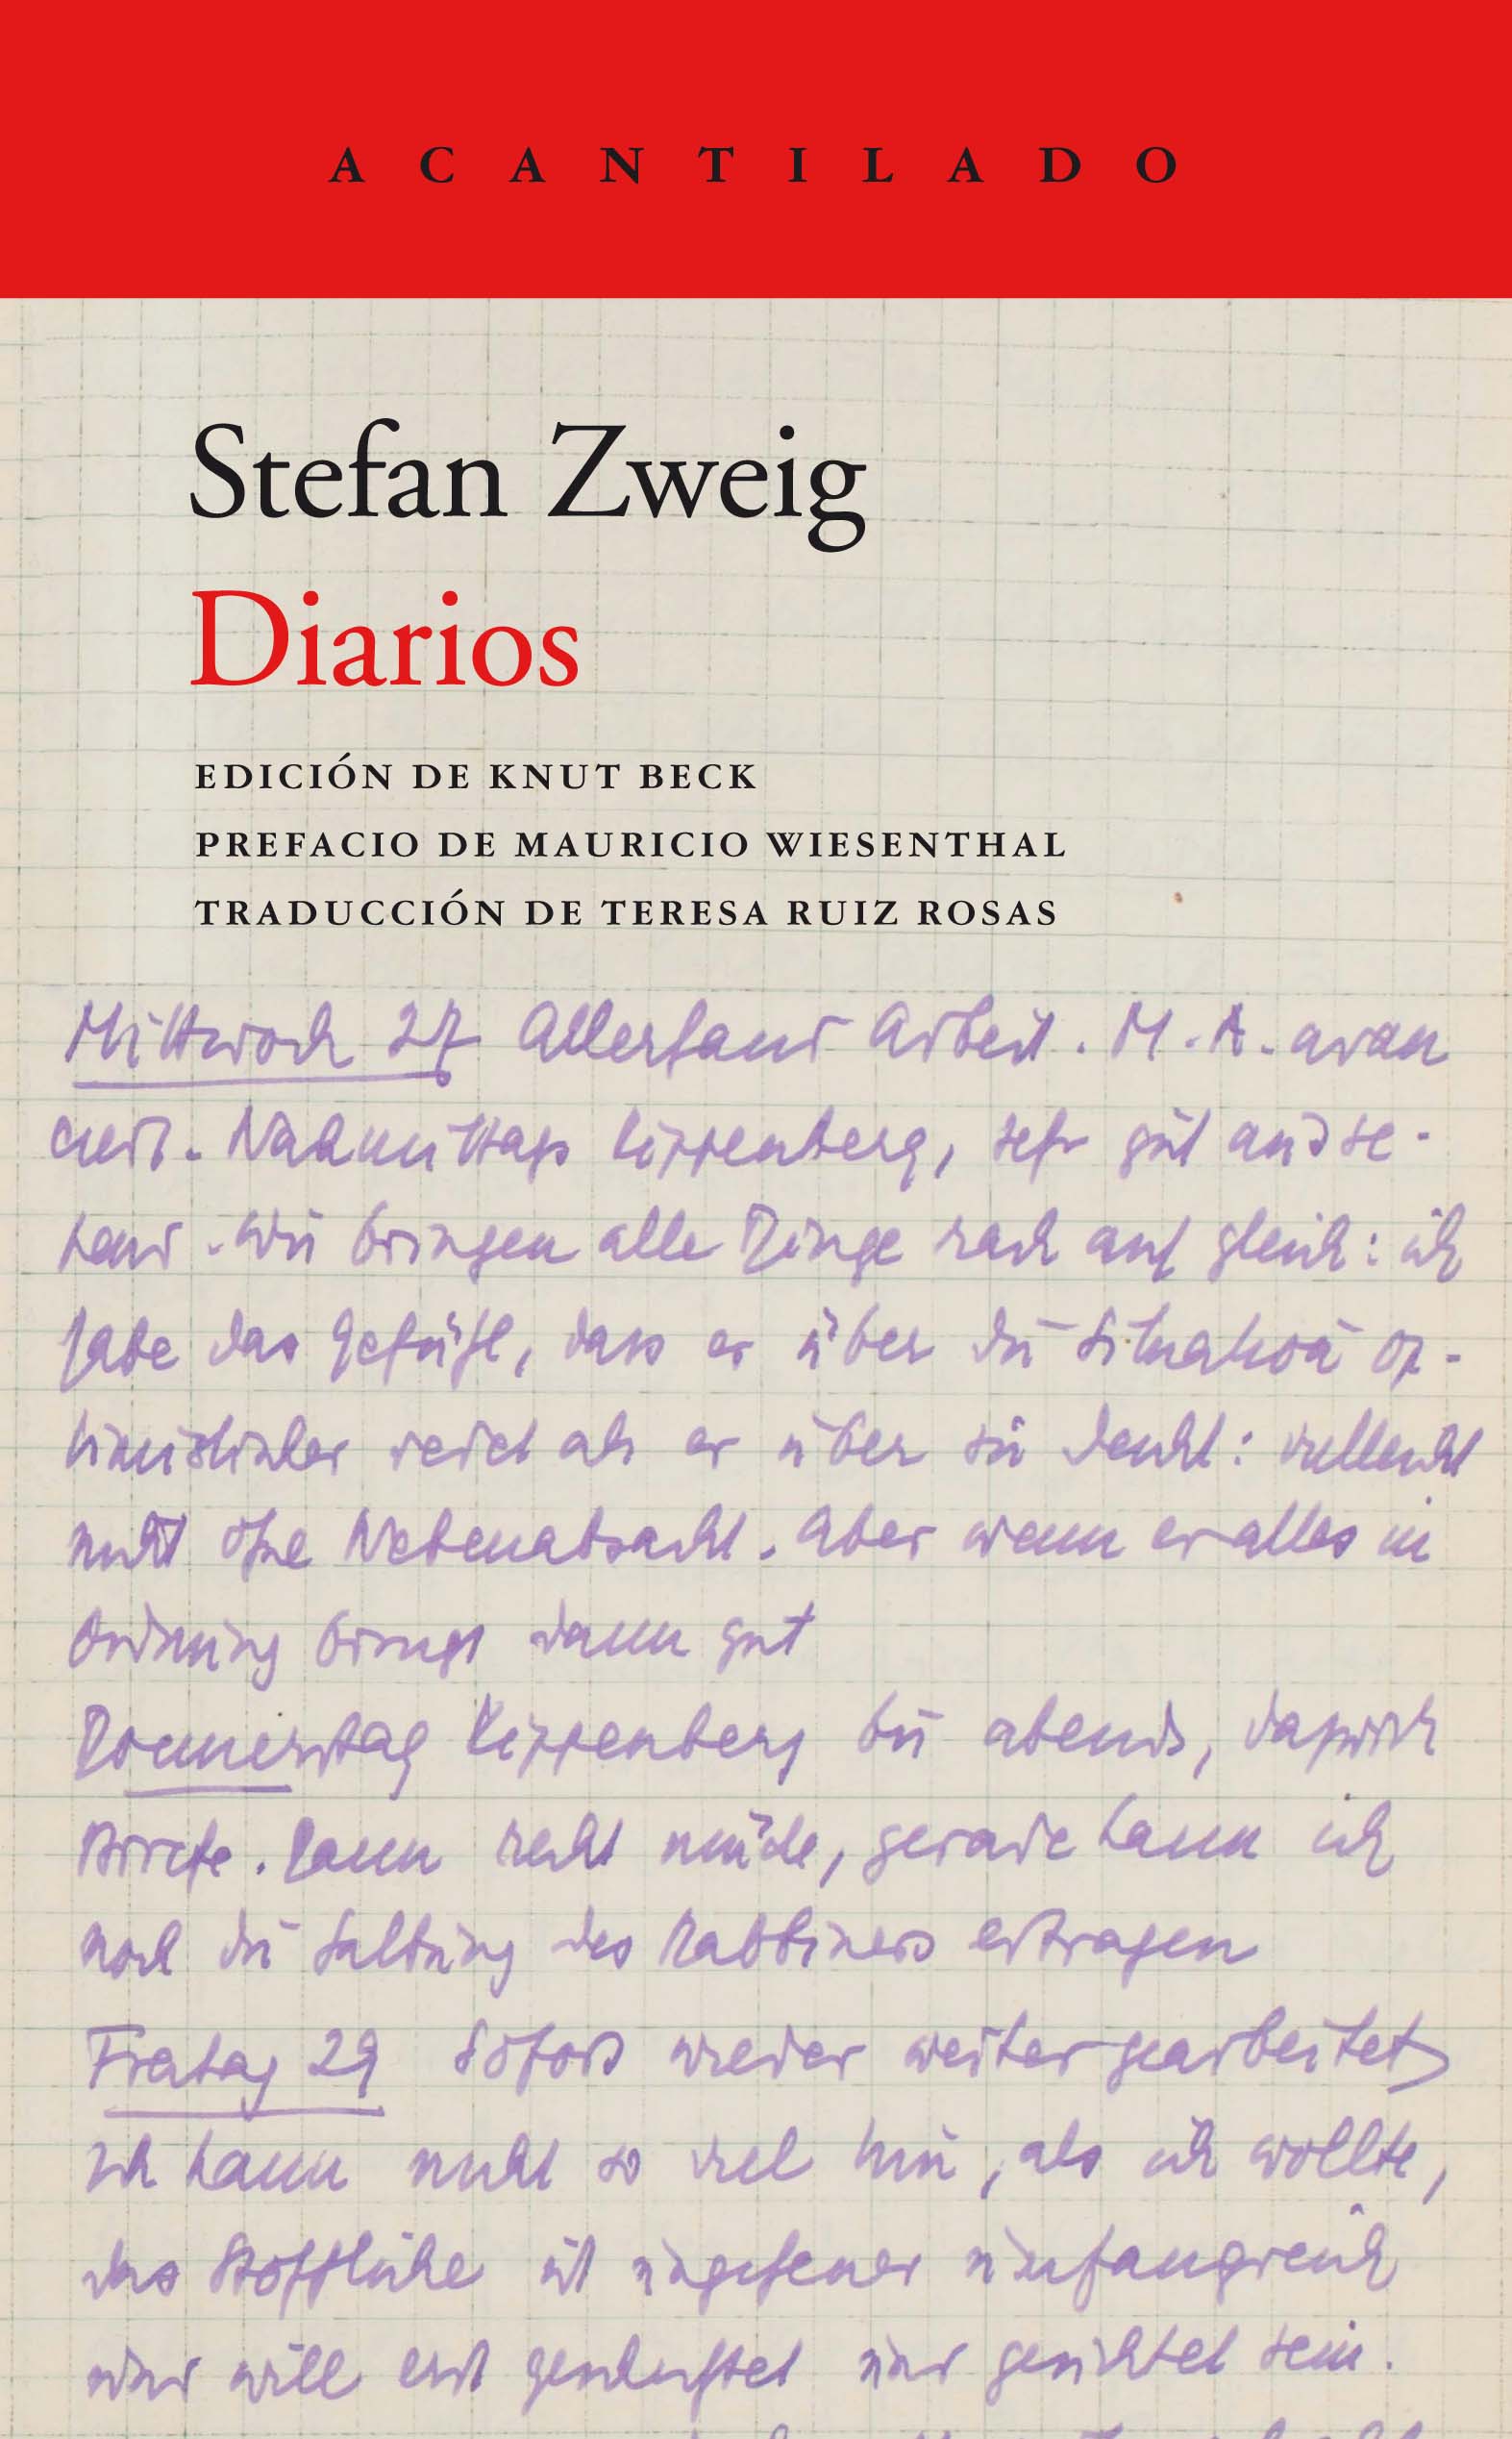 ACANTILADO
Stefan Zweig
Diarios
EDICIÓN DE KNUT BECK
PREFACIO DE MAURICIO WIESENTHAL
TRADUCCIÓN DE TERESA RUIZ ROSAS
Mittwoch 27 Allerhand Arbeit. M. A. avan
ciert. Nachmittags Kippenberg, sehr gut ausse-
hend. Wir bringen alle Dinge rasch auf gleich: ich
habe das Gefühl, dass er über die Situation op-
timistischer redet als er über sie denkt: vielleicht
nicht ohne Nebenabsicht. Aber wenn er alles in
Ordnung bringt dann gut
Donnerstag Kippenberg bis abends, dazwisch
Briefe. Dann recht müde, gerade kann ich
noch die Haltung des Rabbiners ertragen
Freitag 29 Sofort wieder weiter gearbeitet
Ich kann nicht so viel tun, als ich wollte,
das Stoffliche ist ungeheuer umfangreich
und will erst und gesichtet sein.